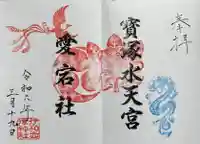 奉拝
寶塚水天宮
愛宕社
令和六年
三月十九日